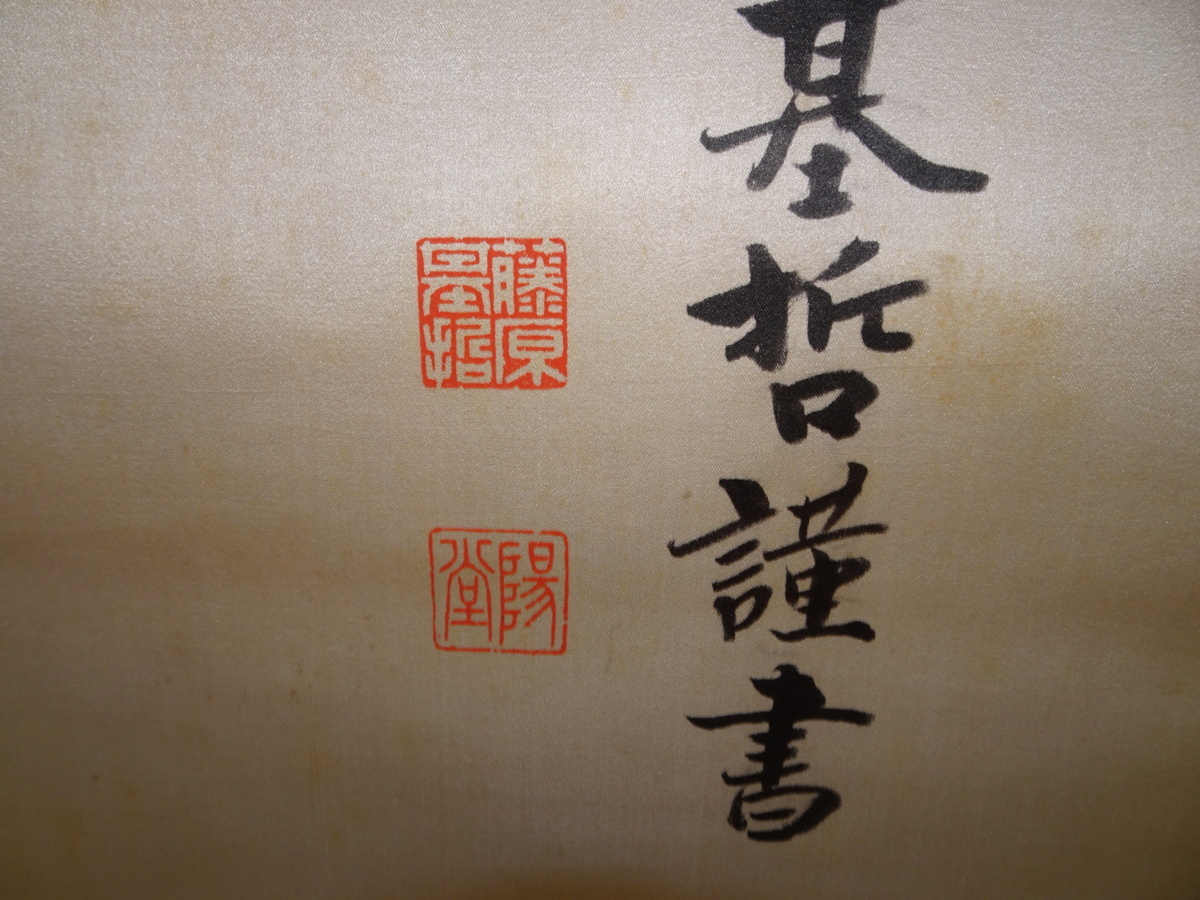 基哲謹書
藤原
基哲
陽
堂